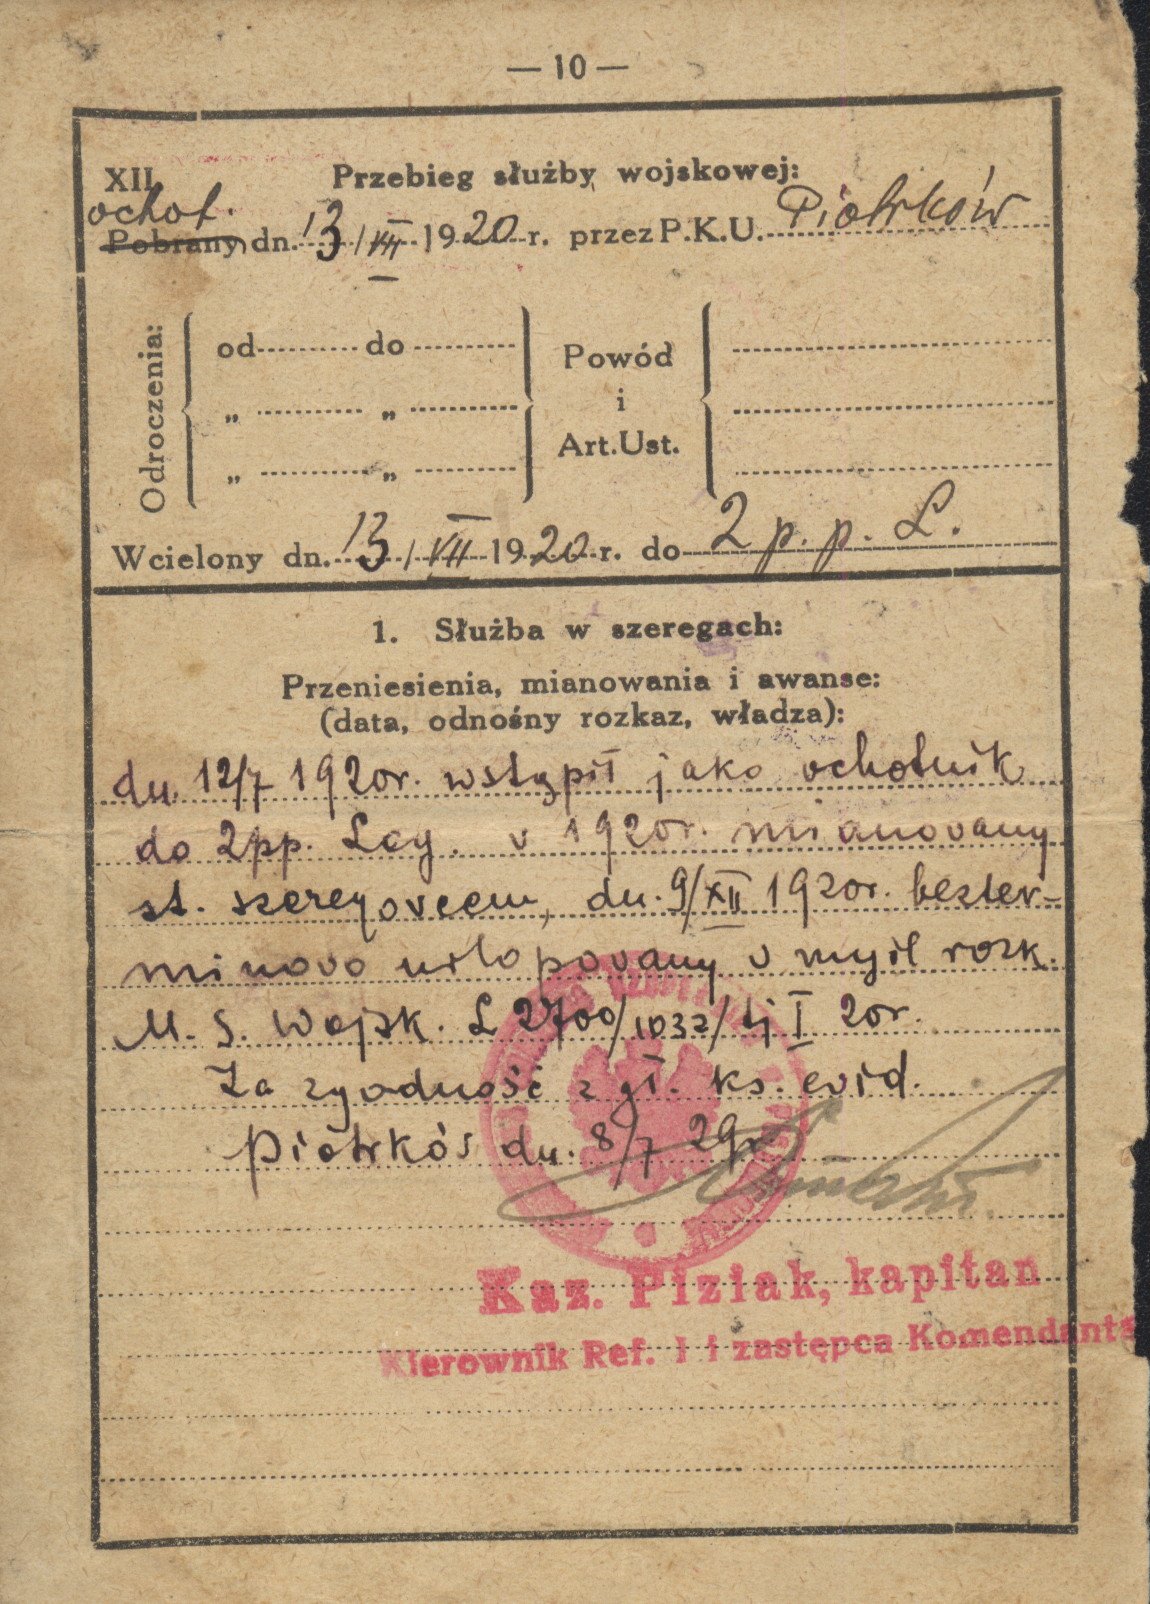 — 10 —
XII. Przebieg służby wojskowej:
ochot.
Pobrany dn. 13/VII 1920 r. przez P.K.U. Piotrków
Odroczenia:
od do Powód
„ „ i
„ „ Art. Ust.
Wcielony dn. 13/VII 1920 r. do 2 p. p. L.
1. Służba w szeregach:
Przeniesienia, mianowania i awanse:
(data, odnośny rozkaz, władza):
dn. 12/7 1920r. wstąpił jako ochotnik
do 2pp. Leg. w 1920r. mianowany
st. szeregowcem, dn. 9/XII 1920r. bezter-
minowo urlopowany w myśl rozk.
M. S. Wojsk. L 2700/1032/ I 20r.
Za zgodność z gł. ks. ewid.
Piotrków dn. 8/7 29r
Kaz. Piziak, kapitan
Kierownik Ref. I i zastępca Komendanta